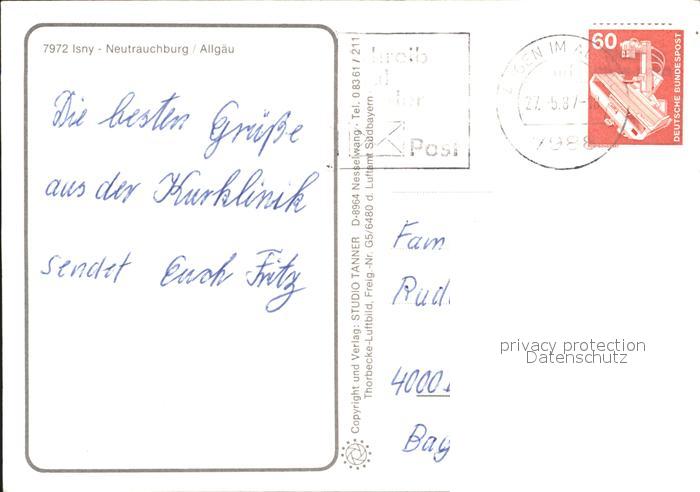 7972 Isny - Neutrauchburg / Allgäu
Die besten Grüße
aus der Kurklinik
sendet Euch Fritz
Copyright und Verlag: STUDIO TANNER D-8964 Nesselwang · Tel. 0 83 61 / 211
Thorbecke-Luftbild, Freig.-Nr. G5/6480 d. Luftamt Südbayern
Post
GEN IM
27. -5.87
7988
60
DEUTSCHE BUNDESPOST
Fam
Rud
4000
Bay
privacy protection
Datenschutz